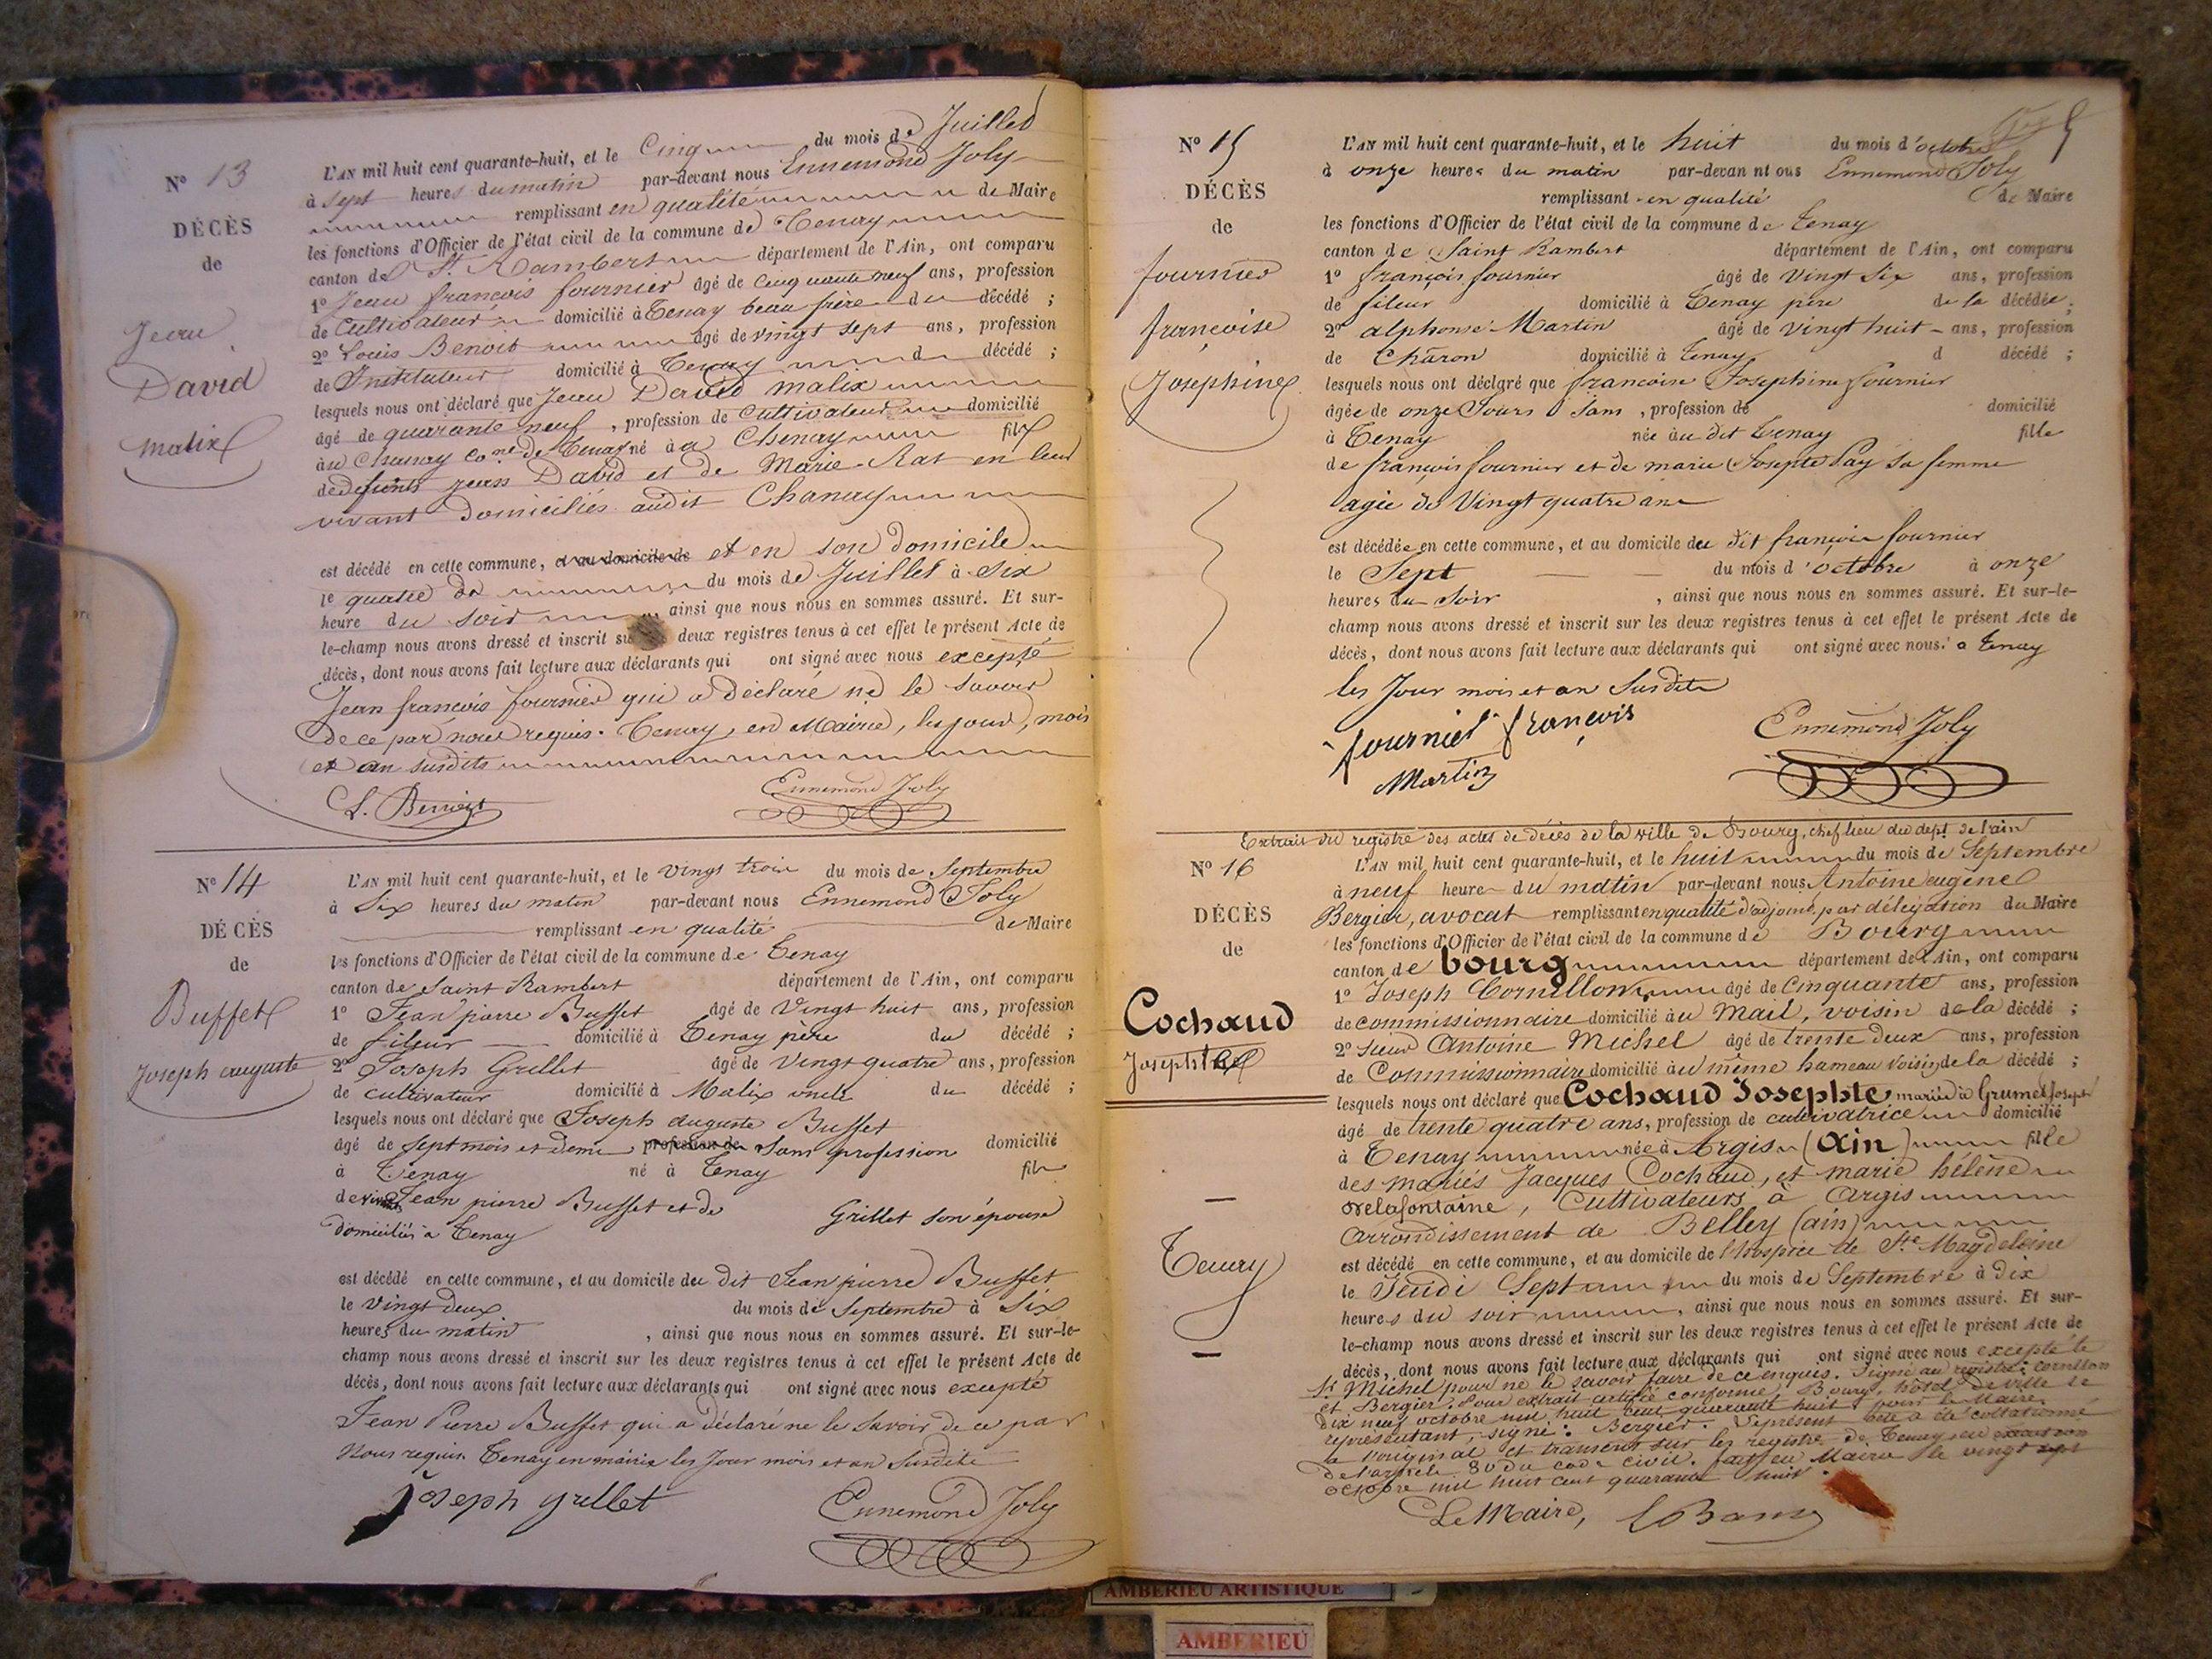 N° 13
DÉCÈS
de
Jean
David
Malix
L'AN mil huit cent quarante-huit, et le Cinq du mois de Juillet
à sept heures du matin par-devant nous Ennemond Joly
remplissant en qualité de Maire
les fonctions d'Officier de l'état civil de la commune de Tenay
canton de St. Rambert département de l'Ain, ont comparu
1° Jean françois fournier âgé de Cinquante neuf ans, profession
de Cultivateur domicilié à Tenay beau frère du décédé ;
2° Louis Benoit âgé de vingt sept ans, profession
de Instituteur domicilié à Tenay d décédé ;
lesquels nous ont déclaré que Jean David Malix
âgé de quarante neuf , profession de Cultivateur domicilié
au Chanay cone de Tenay né à Chenay fils
de defunts Jean David et de Marie Rat en leur
vivant domiciliés audit Chanay
est décédé en cette commune, et au domicile de et en son domicile
le quatre du mois de Juillet à Six
heure du soir ainsi que nous nous en sommes assuré. Et sur-
le-champ nous avons dressé et inscrit su deux registres tenus à cet effet le présent Acte de
décès, dont nous avons fait lecture aux déclarants qui ont signé avec nous excepté
Jean françois fournier qui a déclaré ne le savoir
de ce par nous requis. Tenay, en Mairie, les jour, mois
et an susdits
L. Benoit Ennemond Joly
N° 14
DÉCÈS
de
Buffet
Joseph auguste
L'AN mil huit cent quarante-huit, et le vingt trois du mois de Septembre
à Six heures du matin par-devant nous Ennemond Joly
remplissant en qualité de Maire
les fonctions d'Officier de l'état civil de la commune de Tenay
canton de Saint Rambert département de l'Ain, ont comparu
1° Jean pierre Buffet âgé de Vingt huit ans, profession
de fileur domicilié à Tenay père du décédé ;
2° Joseph Grillet âgé de Vingt quatre ans, profession
de cultivateur domicilié à Malix oncle du décédé ;
lesquels nous ont déclaré que Joseph auguste Buffet
âgé de Sept mois et demi , profession de Sans profession domicilié
à Tenay né à Tenay fils
de Jean pierre Buffet et de Grillet son épouse
domiciliés à Tenay
est décédé en cette commune, et au domicile du dit Jean pierre Buffet
le vingt deux du mois de Septembre à Six
heures du matin , ainsi que nous nous en sommes assuré. Et sur-le-
champ nous avons dressé et inscrit sur les deux registres tenus à cet effet le présent Acte de
décès, dont nous avons fait lecture aux déclarants qui ont signé avec nous excepté
Jean Pierre Buffet qui a déclaré ne le Savoir de ce par
Nous requis Tenay en mairie les Jour mois et an Susdits
Joseph grillet Ennemond Joly
5
N° 15
DÉCÈS
de
fournier
françoise
Josephine
L'AN mil huit cent quarante-huit, et le huit du mois d'octobre
à onze heures du matin par-devan nt ous Ennemond Joly
remplissant en qualité de Maire
les fonctions d'Officier de l'état civil de la commune de Tenay
canton de Saint Rambert département de l'Ain, ont comparu
1° françois fournier âgé de Vingt Six ans, profession
de fileur domicilié à Tenay père de la décédée ;
2° alphonse Martin âgé de Vingt huit ans, profession
de Charon domicilié à Tenay d décédé ;
lesquels nous ont déclaré que francoise Josephine fournier
âgée de onze Jours Sans , profession de domicilié
à Tenay née au dit Tenay fille
de françois fournier et de marie Josepte Pay sa femme
agée de Vingt quatre ans
est décédée en cette commune, et au domicile du dit françois fournier
le Sept du mois d'octobre à onze
heures du Soir , ainsi que nous nous en sommes assuré. Et sur-le-
champ nous avons dressé et inscrit sur les deux registres tenus à cet effet le présent Acte de
décès, dont nous avons fait lecture aux déclarants qui ont signé avec nous. a Tenay
les Jour mois et an Susdits
fournier françois Ennemond Joly
Martin
Extrait du registre des actes de décès de la ville de Bourg, chef lieu du dept. de l'ain
N° 16
DÉCÈS
de
Cochaud
Josephte
Tenay
L'AN mil huit cent quarante-huit, et le huit du mois de Septembre
à neuf heure du matin par-devant nous Antoine eugène
Bergier, avocat remplissant en qualité d'adjoint par délégation du Maire
les fonctions d'Officier de l'état civil de la commune de Bourg
canton de bourg département de l'Ain, ont comparu
1° Joseph Cornillon âgé de Cinquante ans, profession
de commissionnaire domicilié au Mail, voisin de la décédé ;
2° sieur Antoine Michel âgé de trente deux ans, profession
de Commissionnaire domicilié au même hameau voisin de la décédé ;
lesquels nous ont déclaré que Cochaud Josephte mariée à Grumet Joseph
âgé de trente quatre ans, profession de cultivatrice domicilié
à Tenay née à Argis (Ain) fille
des mariés Jacques Cochaud, et marie hélène
Delafontaine, Cultivateurs à Argis
Arrondissement de Belley (ain)
est décédé en cette commune, et au domicile de l'hospice de Ste Magdeleine
le Jeudi Sept du mois de Septembre à Dix
heures du soir , ainsi que nous nous en sommes assuré. Et sur-
le-champ nous avons dressé et inscrit sur les deux registres tenus à cet effet le présent Acte de
décès, dont nous avons fait lecture aux déclarants qui ont signé avec nous excepté le
Sr Michel pour ne le savoir faire de ce enquis. Signé au registre: Cornillon
et Bergier. Pour extrait certifié conforme, Bourg, hôtel de ville le
Dix neuf octobre mil huit cent quarante huit, pour le Maire
représentant, signé: Bergier. Le présent acte a été collationné
à l'original et transcrit sur les registre de Tenay en
de l'article 80 du code civil. fait en Mairie le vingt sept
octobre mil huit cent quarante huit.
Le Maire,
AMBERIEU ARTISTIQUE
AMBERIEU